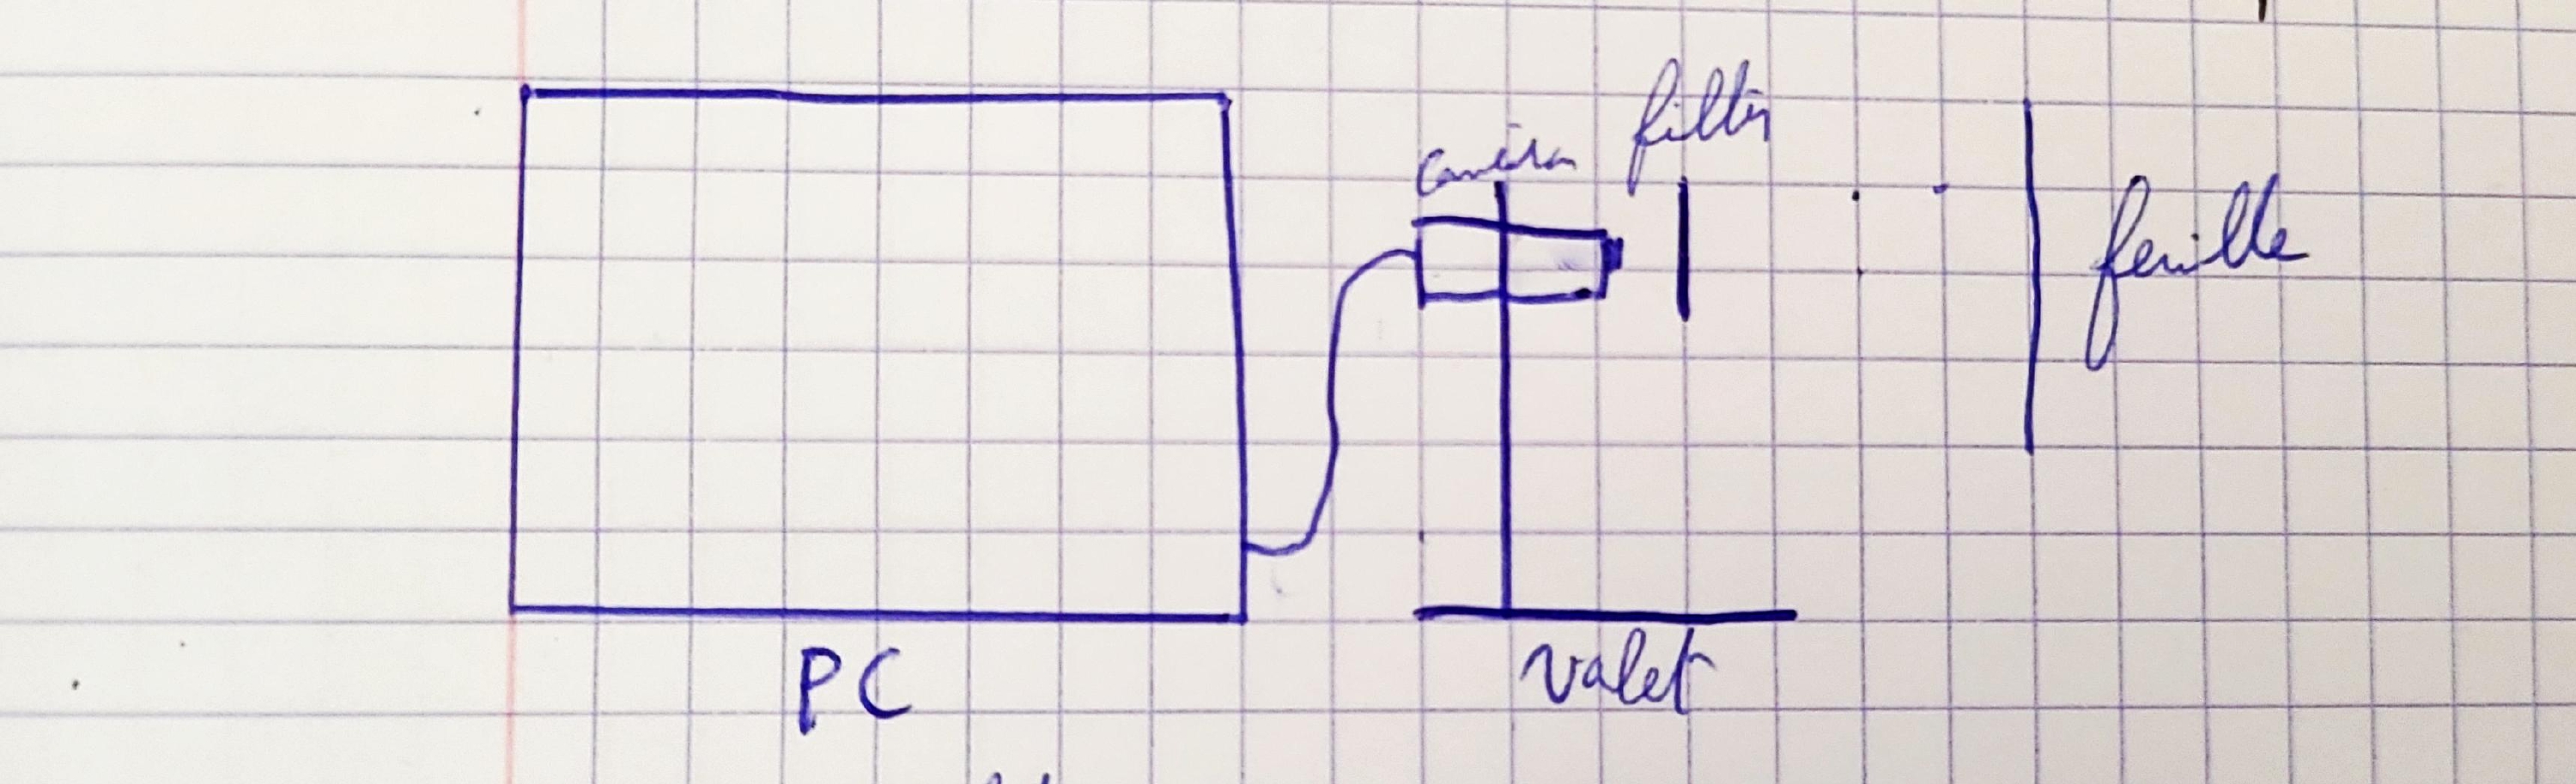 caméra
filtre
feuille
PC
valet